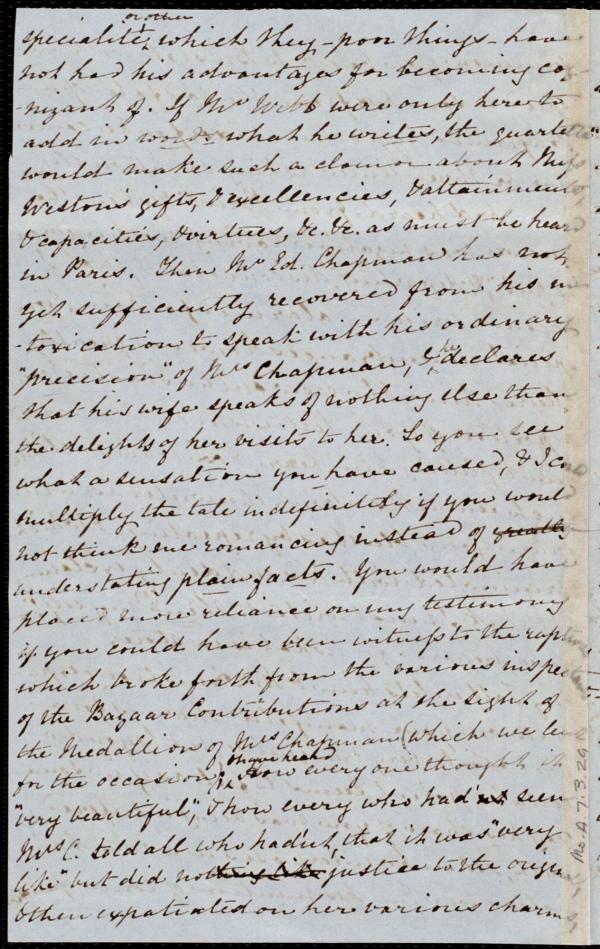 or other
specialité, which they – poor things – have
not had his advantages for becoming cog
-nizant of. If Mr Webb were only here to
add in words what he writes, the quartette
would make such a clamor about Miss
Weston's gifts, & excellencies, & attainments,
& capacities, & virtues, &c. &c. as must be heard
in Paris. Then Mr Ed. Chapman has not
yet sufficiently recovered from his in
-toxication to speak with his ordinary
"precision" of Mrs Chapman, & he declares
that his wife speaks of nothing else than
the delights of her visits to her. So you see
what a sensation you have caused, & I can
multiply the tale indefinitely if you would
not think me romancing instead of greatly
understating plain facts. You would have
placed more reliance on my testimony
if you could have been witness to the raptures
which broke forth from the various inspectors
of the Bazaar Contributions at the sight of
the Medallion of Mrs Chapman (which we lent
for the occasion) how every one thought it
"very beautiful", & how every who had'nt seen
Mrs C. told all who had'nt, that it was "very
like" but did nothing like justice to the original,
& then expatiated on her various charms,
Ms.A.7.3.29